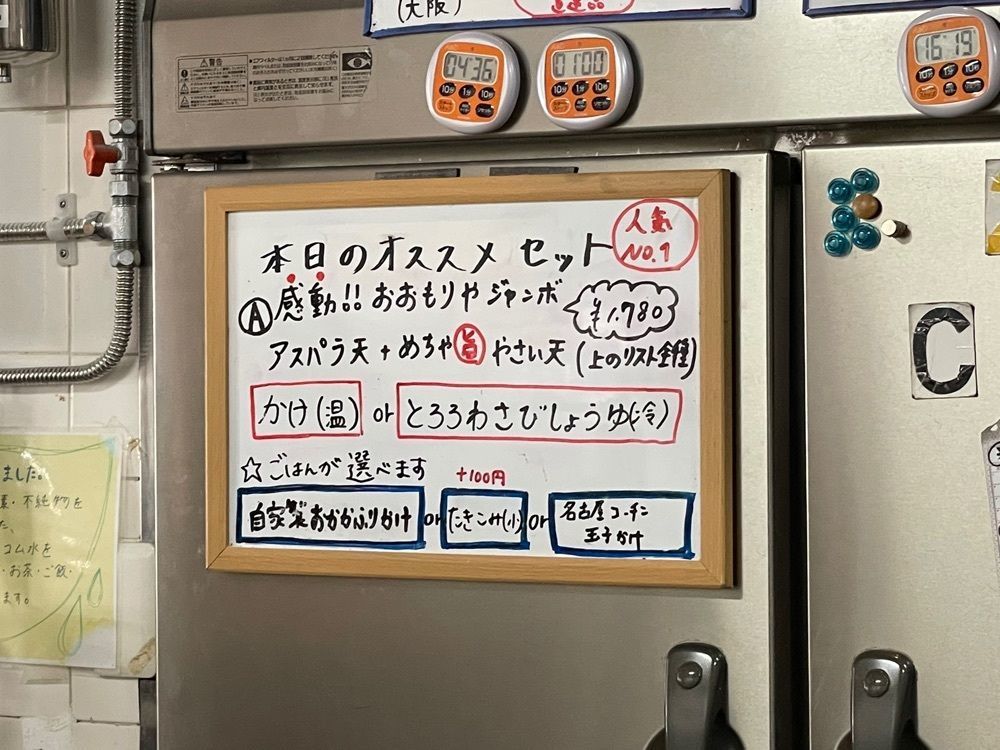 (大阪)
警告
04:36
0 1:00
16:19
10分 1分 10秒
10分 1分 10秒
10分 1分 10秒
本日のオススメ セット
人気
NO.1
Ⓐ感動!! おおもりや ジャンボ
¥1,780
アスパラ天+めちゃ旨やさい天(上のリスト全種)
かけ(温) or とろろわさびしょうゆ(冷)
☆ごはんが選べます
+100円
自家製おかかふりかけ or たきこみ(小) or 名古屋コーチン
玉子かけ
C
ました。
コム水を
・お茶・ご飯・
ます。